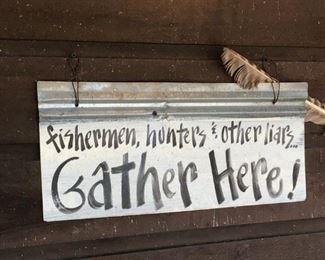 fishermen, hunters & other liars...
Gather Here!